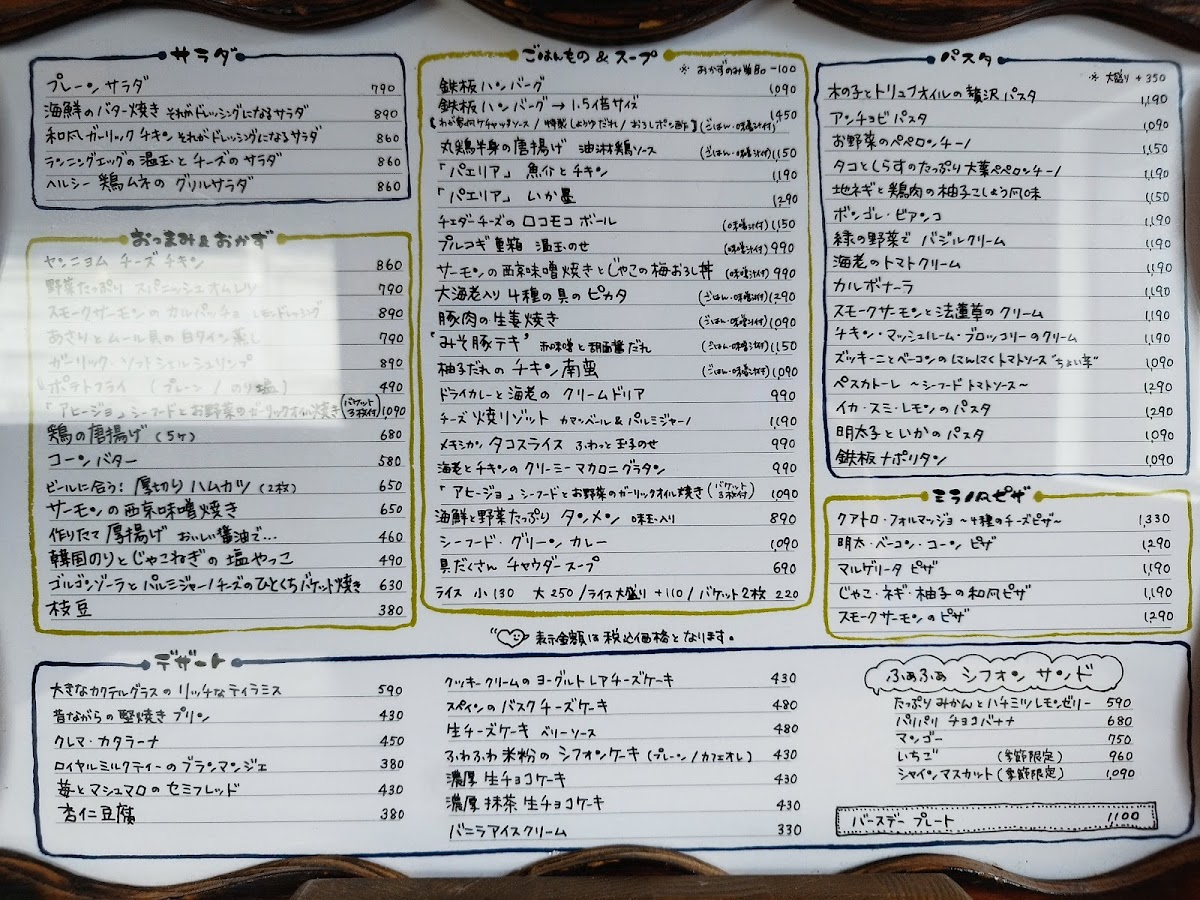 サラダ
プレーン サラダ 790
海鮮のバター焼き それがドレッシングになるサラダ 890
和風ガーリック チキン それがドレッシングになるサラダ 860
ランニングエッグの温玉とチーズのサラダ 860
ヘルシー 鶏ムネの グリルサラダ 860
おつまみ & おかず
ヤンニョム チーズ チキン 860
野菜たっぷり スパニッシュオムレツ 790
スモークサーモンの カルパッチョ レモンドレッシング 890
あさりとムール貝の白ワイン蒸し 790
ガーリック・ソフトシェルシュリンプ 890
ポテトフライ (プレーン / のり塩) 490
「アヒージョ」シーフードとお野菜のガーリックオイル焼き (バケット3枚付) 1,090
鶏の唐揚げ (5ヶ) 680
コーンバター 580
ビールに合う! 厚切りハムカツ (2枚) 650
サーモンの西京味噌焼き 650
作りたて厚揚げ おいしい醤油で… 460
韓国のりとじゃこねぎの 塩やっこ 490
ゴルゴンゾーラとパルミジャーノチーズのひとくちバケット焼き 630
枝豆 380
ごはんもの & スープ
※ おかずのみ単品 -100
鉄板ハンバーグ 1,090
鉄板ハンバーグ → 1.5倍サイズ 1,450
ケチャップソース / 特製しょうゆだれ / おろしポン酢】(ごはん・味噌汁付)
丸鶏半身の唐揚げ 油淋鶏ソース (ごはん・味噌汁付) 1,150
「パエリア」 魚介とチキン 1,190
「パエリア」 いか墨 1,290
チェダーチーズの ロコモコ ボール (味噌汁付) 1,150
プルコギ重箱 温玉のせ (味噌汁付) 990
サーモンの西京味噌焼きとじゃこの梅おろし丼 (味噌汁付) 990
大海老入り 4種の具の ピカタ (ごはん・味噌汁付) 1,290
豚肉の生姜焼き (ごはん・味噌汁付) 1,090
「みそ豚テキ」 赤味噌と胡麻醤だれ (ごはん・味噌汁付) 1,150
柚子だれの チキン南蛮 (ごはん・味噌汁付) 1,090
ドライカレーと海老の クリームドリア 990
チーズ焼リゾット カマンベール & パルミジャーノ 1,190
メキシカン タコスライス ふわっと玉子のせ 990
海老とチキンの クリーミーマカロニグラタン 990
「アヒージョ」シーフードとお野菜のガーリックオイル焼き (バケット3枚付) 1,090
海鮮と野菜たっぷり タンメン 味玉入り 890
シーフード・グリーン カレー 1,090
具だくさん チャウダースープ 690
ライス 小 130 大 250 / ライス大盛り +110 / バケット2枚 220
表示金額は税込価格となります。
パスタ
※ 大盛り +350
木の子とトリュフオイルの贅沢パスタ 1,190
アンチョビパスタ 1,090
お野菜のペペロンチーノ 1,150
タコとしらすのたっぷり大葉ペペロンチーノ 1,190
地ネギと鶏肉の柚子こしょう風味 1,150
ボンゴレ・ビアンコ 1,190
緑の野菜で バジルクリーム 1,190
海老のトマトクリーム 1,190
カルボナーラ 1,190
スモークサーモンと法蓮草のクリーム 1,190
チキン・マッシュルーム・ブロッコリーのクリーム 1,190
ズッキーニとベーコンのにんにくトマトソース "ちょい辛" 1,090
ペスカトーレ 〜シーフード トマトソース〜 1,290
イカ・スミ・レモンのパスタ 1,290
明太子といかのパスタ 1,090
鉄板ナポリタン 1,090
ミラノ風ピザ
クアトロ・フォルマッジョ 〜4種のチーズピザ〜 1,330
明太・ベーコン・コーン ピザ 1,290
マルゲリータ ピザ 1,190
じゃこ・ネギ・柚子の和風ピザ 1,190
スモークサーモンのピザ 1,290
デザート
大きなカクテルグラスの リッチなティラミス 590
昔ながらの堅焼きプリン 430
クレマ・カタラーナ 450
ロイヤルミルクティーのブランマンジェ 380
苺とマシュマロの セミフレッド 430
杏仁豆腐 380
クッキークリームのヨーグルトレアチーズケーキ 430
スペインの バスクチーズケーキ 480
生チーズケーキ ベリーソース 480
ふわふわ米粉の シフォンケーキ (プレーン / カフェオレ) 430
濃厚 生チョコケーキ 430
濃厚 抹茶 生チョコケーキ 430
バニラアイスクリーム 330
ふぁふぁ シフォン サンド
たっぷりみかんとハチミツレモンゼリー 590
パリパリ チョコバナナ 680
マンゴー 750
いちご (季節限定) 960
シャインマスカット (季節限定) 1,090
バースデー プレート 1,100